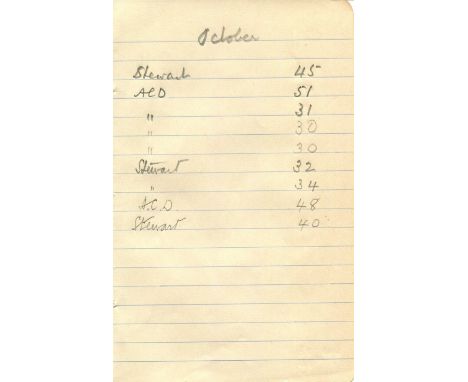 October
Stewart 45
ACD 51
" 31
" 30
" 30
Stewart 32
" 34
A.C.D. 48
Stewart 40